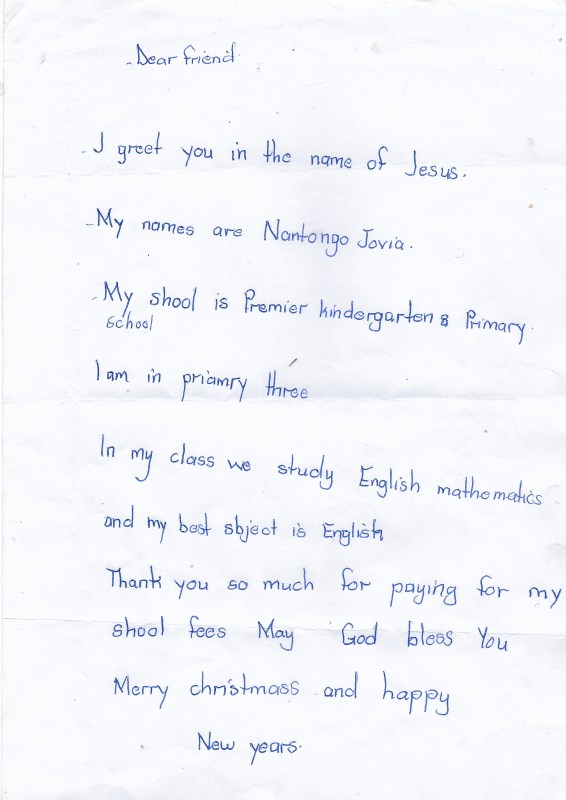 - Dear friend
- I greet you in the name of Jesus.
- My names are Nantongo Jovia.
- My shool is Premier kindergarten & Primary.
school
I am in priamry three
In my class we study English mathematics
and my best sbject is English
Thank you so much for paying for my
shool fees May God bless You
Merry christmass and happy
New years.